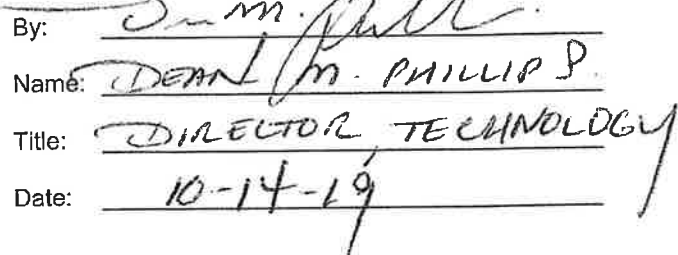 By:
Name: DEAN M. PHILLIPS.
Title: DIRECTOR, TECHNOLOGY
Date: 10-14-19